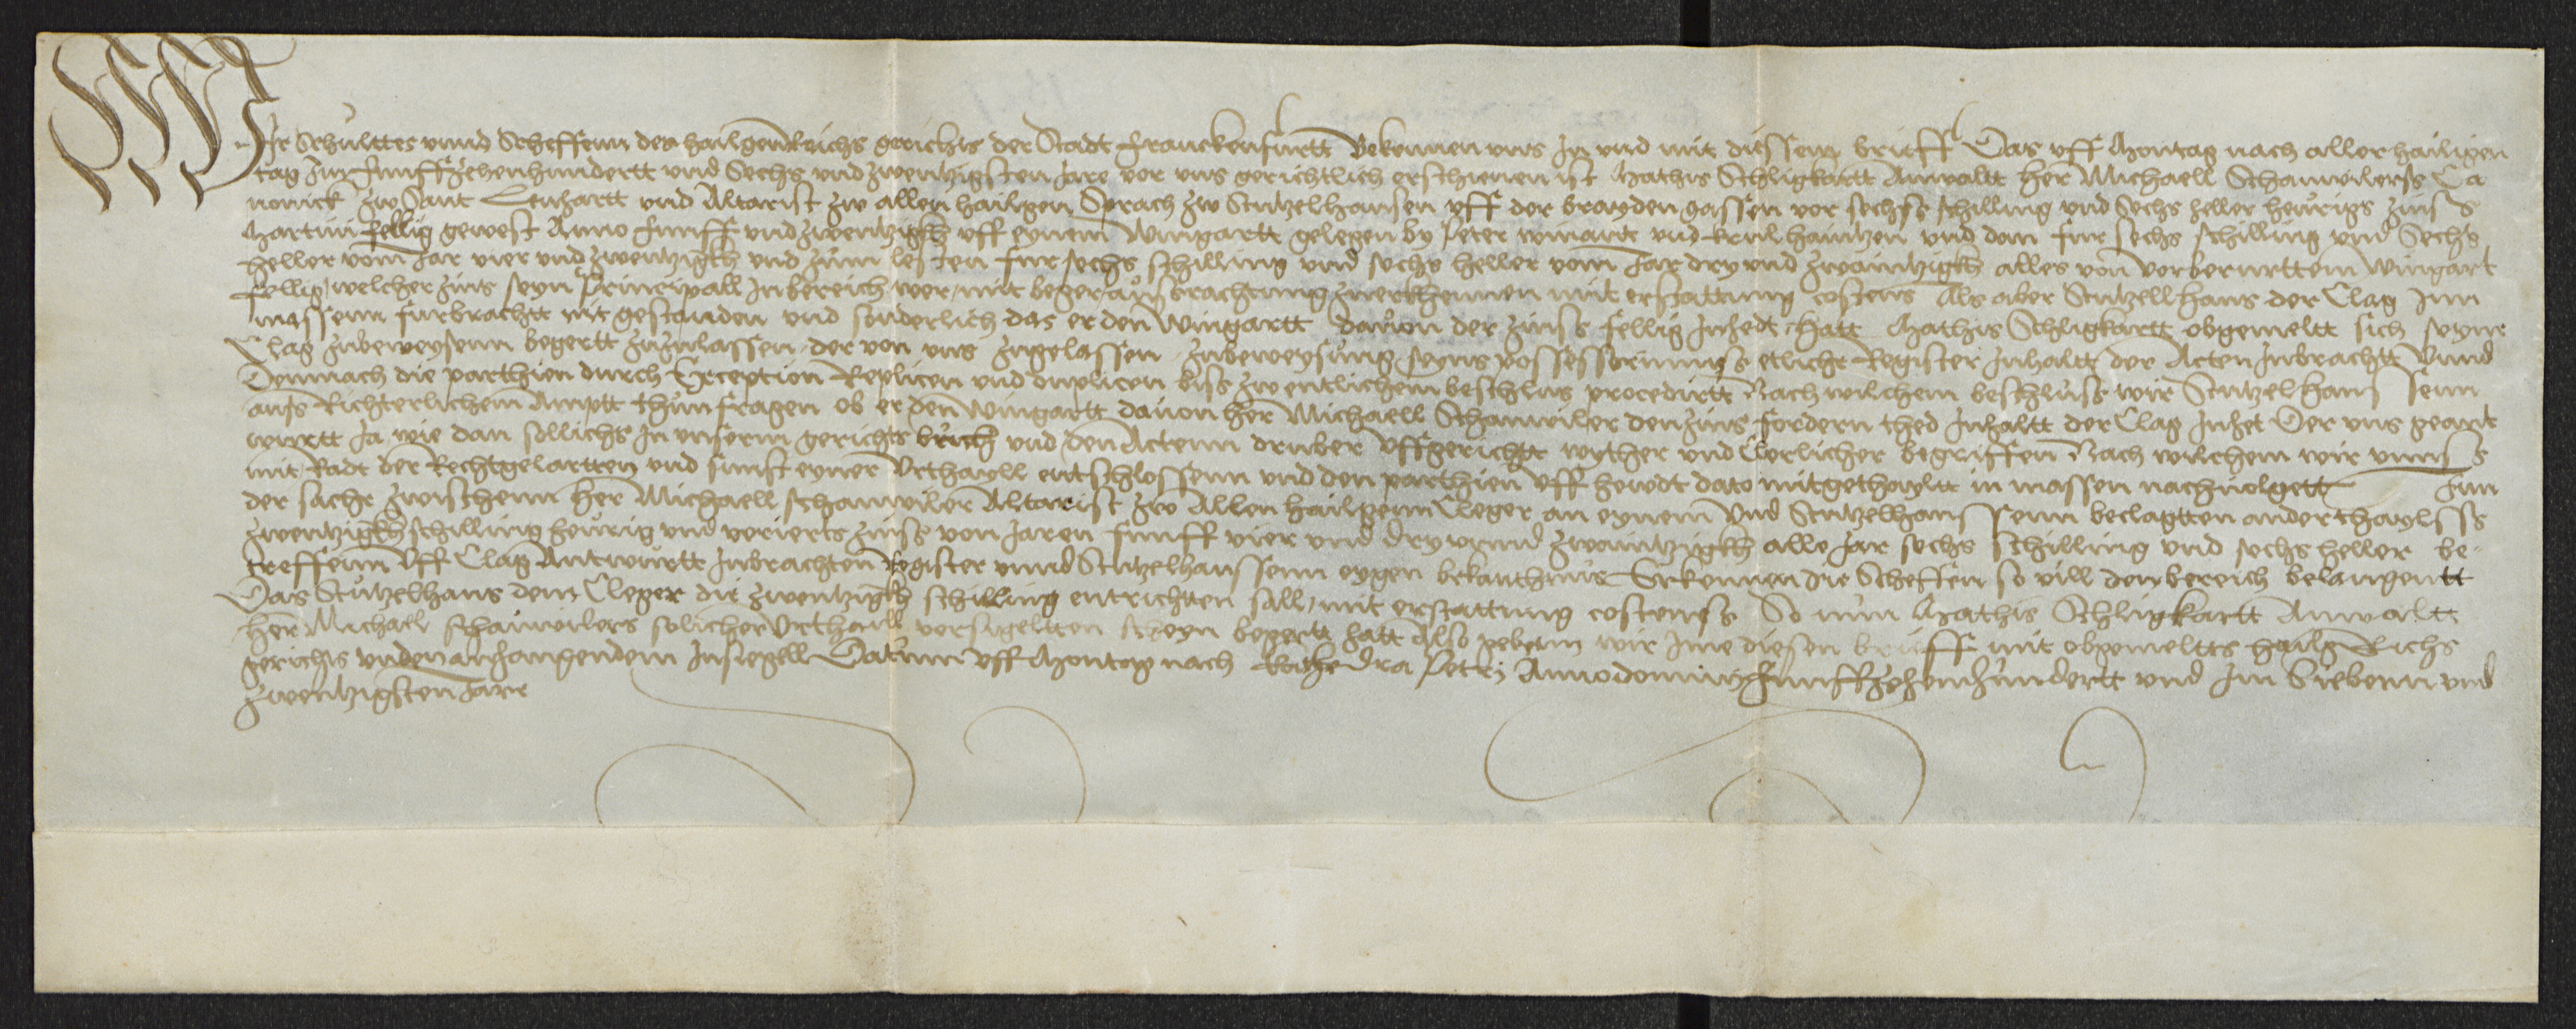 Wir Schulttes vnnd Scheffenn des hailgen Reichs gerichts der Stadt Franckenfurtt Bekennen vns In vnd mit diessem brieff Das vff Montag nach aller hailigen
tag Im funffzehenhundertt vnd Sechs vnd zwentzigsten Jare vor vns gerichtlich erschienen ist Mathis Schligkartt Anwaltt her Michaell Schanwilerss Ca
nonick zw Sant Lenhartt vnd Altarist zw allen hailgen Sprach zw Stutzelhansen vff der brayden gassen vor sechss schilling vnd Sechs heller heurigs zinss
Martini fellig gewest Anno funff vnd zwentzigkh vff eynem Wingartt gelegen by Peter vnd haintzen vnd dan fur sechs schilling vnd Sechs
heller vom Jar vier vnd zwentzigkh vnd zum lesten fur sechs schilling vnd sechs heller vom Jar dry vnd zwaintzigkh alles von vorberurttem wingart
fellig welcher zins seyn Principall In bereich wer mit beger zuerkhennen mit erstattung costens Als aber Stutzellhans der Clag Inn
massenn furbrachtt nit gestanden vnd sonderlich das er den Wingartt dauon der zinss fellig Inhedt hatt Mathis Schligkartt obgemeltt sich seyne
Clag zubeweysenn begertt zuzulassen der von vns zugelassen zubeweysung syns etliche Register Inhaltt der Acten Inbrachtt Vnnd
Demnach die parthien durch Exception Replicen vnd duplicen biss zw entlichem beschlus procedirtt Nach wilchem beschluss wir Stutzelhanssenn
auss Richterlichem Amptt thun fragen ob er den Wingartt dauon her Michaell Schanwiler den zins fordern thed Inhaltt der Clag Inhet Der vns geant
wurtt Ja wie dan sollichs In vnserm gerichts buch vnd den Actenn druber vffgericht wyther vnd Clerlicher begriffen Nach wilchem wir vnnss
mit Radt der Rechtgelartten vnd sunst eyner Vrthayll entschlossenn vnd den parthien vff hewdt dato mitgethayltt in massen nachuolgett Inn
der sache zwischenn her Michaell schanwiler Altarist zw Allen hailgenn Cleger an eynem Vnd Stutzelhanssenn beclagtten anderthaylss
zwentzigkh schilling heurig vnd verierts zinss von Jaren funff vier vnd dry vnnd zwaintzigkh alle Jar sechs schilling vnd sechs heller be-
treffenn Vff Clag Antwurtt Inbrachten Register vnnd Stutzelhanssenn eygen bekanthnus Erkennen die Scheffen so vill den bereich belangentt
Das Stutzelhans dem Cleger die zwentzigkh schilling entrichten sall mit erstattung costenss So nun Mathis Schligkartt Anwaltt
her Michael schanwilers solicher Vrthaill versigeltten scheyn begertt hatt Also geben wir Ime diesen brieff mit obgemeltts hailgn Richs
gerichts vnden anhangendem Insiegell Datum vff Montag nach Kathedra Petrj Anno domini funffzehenhundertt vnd Im Siebenn vnd
zwentzigsten Jare